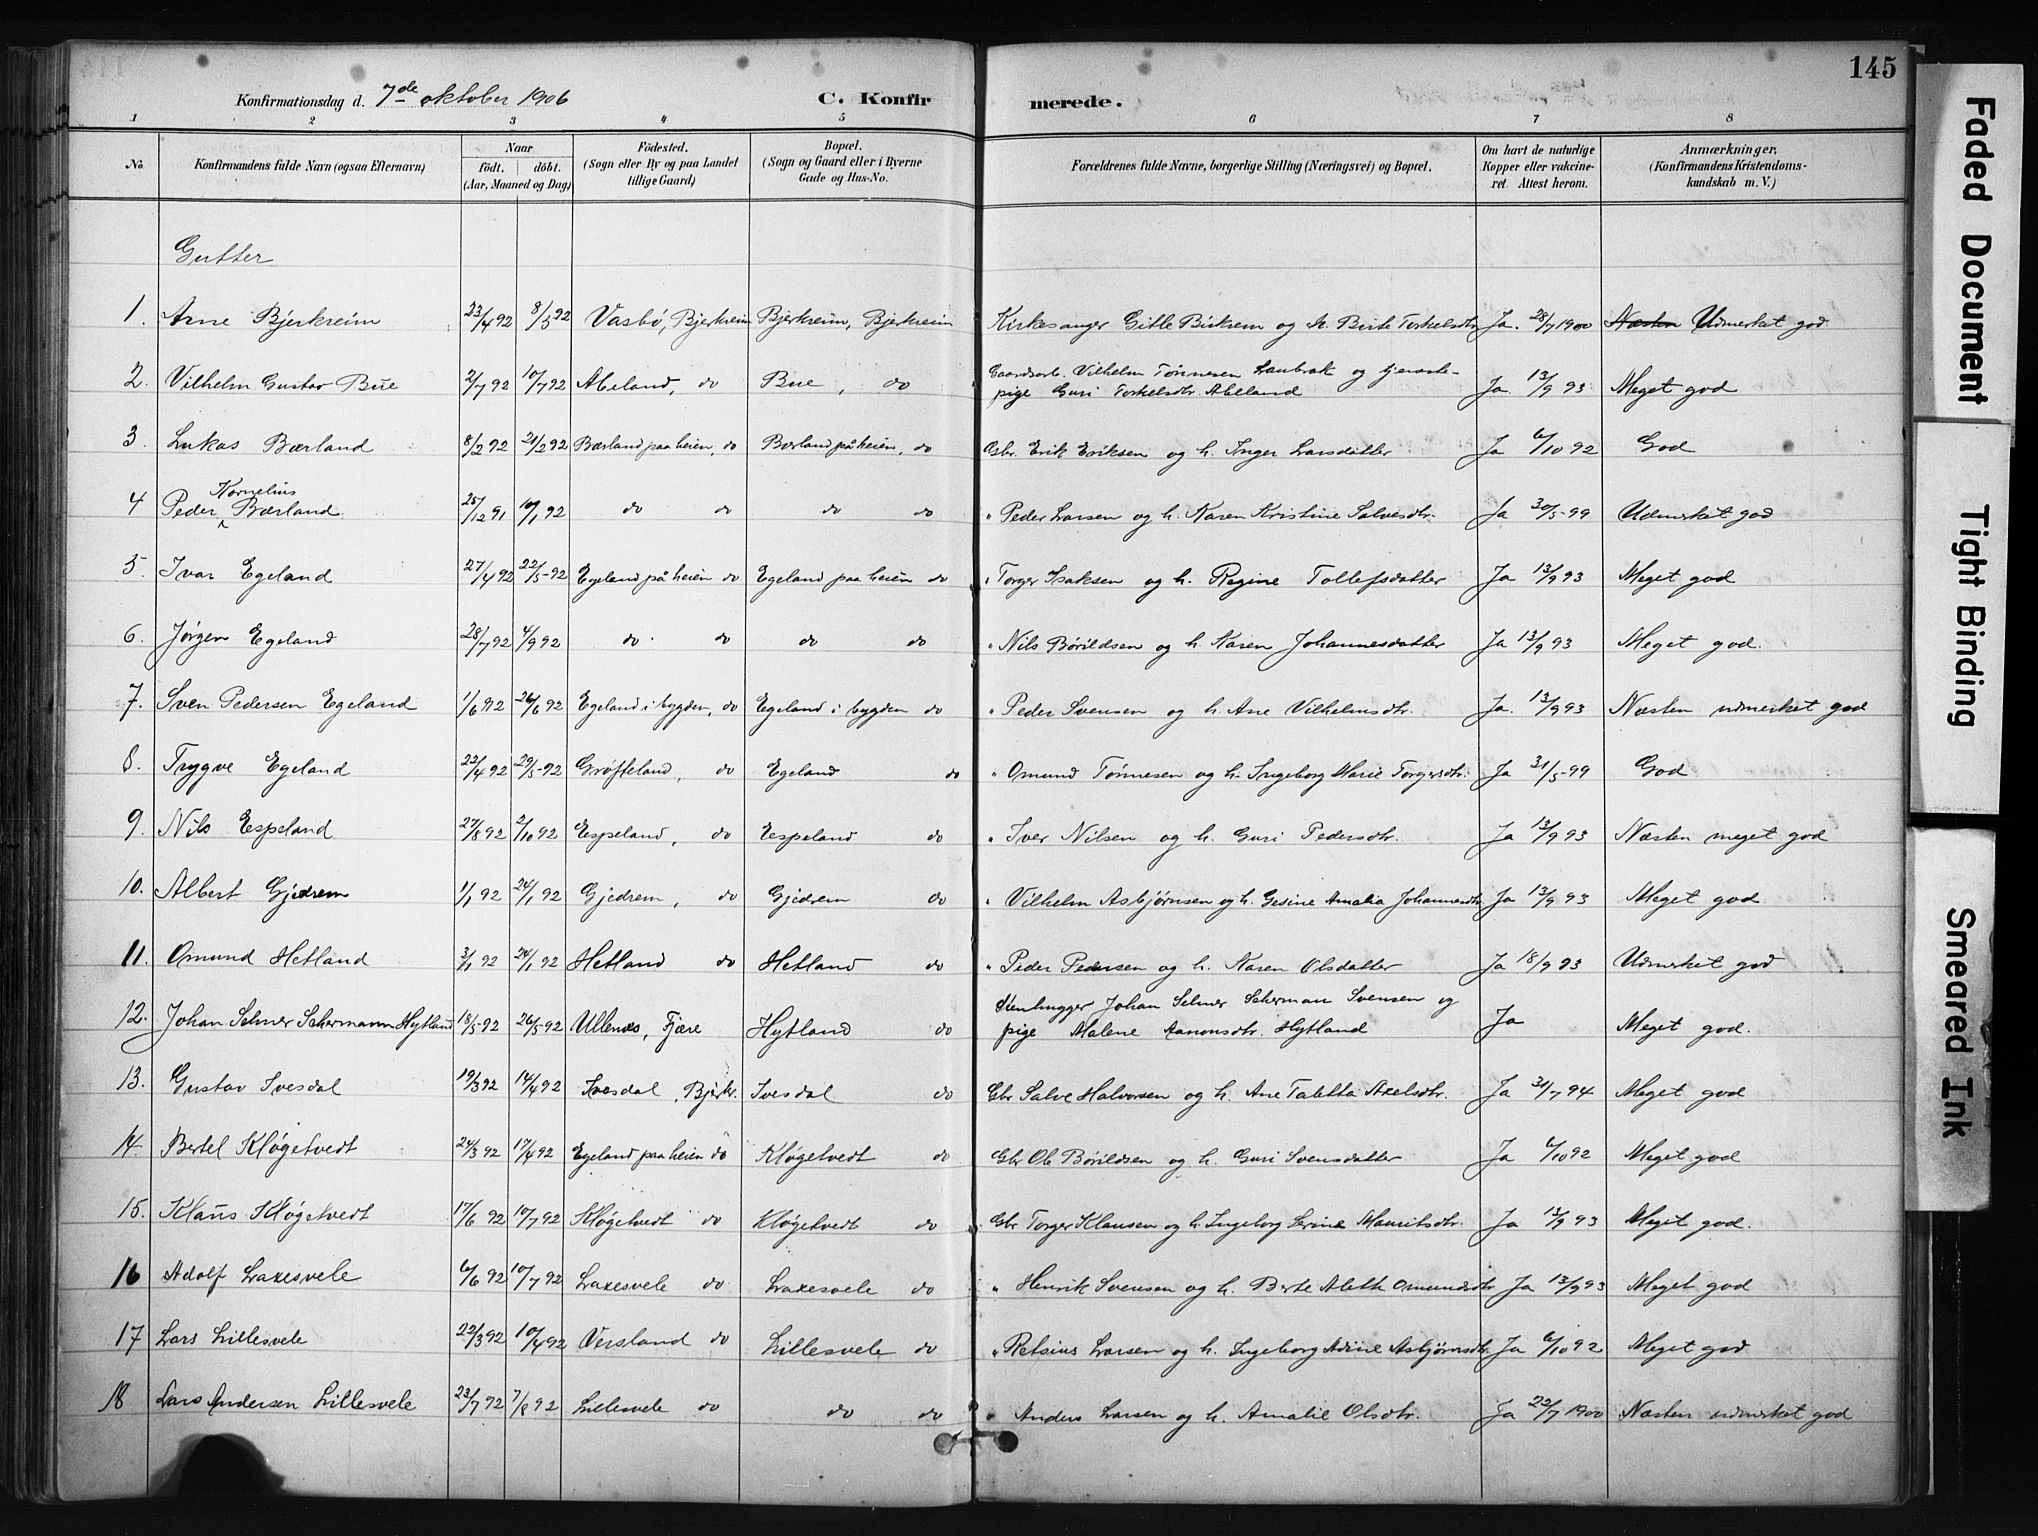 145
Konfirmationsdag d. 7de oktober 1906 C. Konfirmerede.
1 2 3 4 5 6 7 8
No. Konfirmandens fulde Navn (ogsaa Efternavn) Naar Födt. döbt. (Aar, Maaned og Dag) Födested. (Sogn eller By og paa Landet tillige Gaard) Bopæl. (Sogn og Gaard eller i Byerne Gade og Hus-No. Forældrenes fulde Navne, borgerlige Stilling (Næringsvei) og Bopæl. Om havt de naturlige Kopper eller vakcineret. Attest herom. Anmærkninger, (Konfirmandens Kristendomskundskab m. V.)
Gutter
1. Arne Bjerkreim 23/4 92 8/5 92 Vasbö, Bjerkreim Bjerkreim, Bjerkreim Kirkesanger Gitle Birkrem og h. Berte Torkelsdtr Ja. 28/7 1900 Næsten Udmerket god
2. Vilhelm Gustav Bue 2/7 92 10/7 92 Abeland, do Bue, do Gaardsarb. Vilhelm Tönnesen Laubrak og tjeneste-
pige Guri Torkelsdtr. Abeland Ja. 13/9 93 Meget god
3. Lukas Bærland 8/2 92 21/2 92 Bærland paa heien, do Bærland på heien, do Gbr. Erik Eriksen og h. Inger Larsdatter Ja 6/10 92 God
4 Peder Kornelius Bærland 25/12 91 10/1 92 do do do do " Peder Larsen og h. Karen Kristine Salvesdtr. Ja 30/5-99 Udmerket god
5. Ivar Egeland 27/4 92 22/5-92 Egeland på heien do Egeland paa heien do " Torger Isaksen og h. Regine Tollefsdatter Ja 13/9 93 Meget god
6. Jørgen Egeland 28/7 92 4/9 92 do do do do " Nils Börildsen og h. Karen Johannesdatter Ja 13/9 93 Meget god.
7. Sven Pedersen Egeland 1/6 92 26/6 92 Egeland i bygden, do Egeland i bygden do " Peder Svensen og h. Ane Vilhelmsdtr. Ja. 13/9 93 Næsten udmerket god
8. Trygve Egeland 22/4 92 29/5-92 Grøfteland, do Egeland do " Omund Tönnesen og h. Ingeborg Marie Torgersdtr. Ja 31/5-99 God
9. Nils Espeland 27/8 92 2/10 92 Espeland, do Espeland do " Iver Nilsen og h. Guri Pedersdtr. Ja 13/9 93 Næsten meget god
10. Albert Gjedrem 1/1 92 24/1 92 Gjedrem, do Gjedrem do " Vilhelm Asbjörnsen og h. Gesine Amalia Johannesdtr. Ja 13/9 93 Meget god
11. Omund Hetland 3/1 92 24/1 92 Hetland do Hetland do " Peder Pedersen og h. Karen Olsdatter Ja 18/9 93 Udmerket god
12. Johan Selmer Schermann Hytland 18/5-92 26/5-92 Ullenes, Fjære Hytland do Stenhugger Johan Selmer Scherman Svensen og
pige Malene Aanonsdtr. Hytland Ja Meget god.
13. Gustav Ivesdal 19/3 92 14/4 92 Ivesdal, Bjerkr. Ivesdal do Gbr Salve Halvorsen og h. Ane Taletta Axelsdtr. Ja 31/7 94 Meget god
14. Bertel Kløgetvedt 24/3 92 17/4 92 Egeland paa heien do Kløgetvedt do Gbr Ole Börildsen og h. Guri Svensdatter Ja 6/10 92 Meget god
15. Klaus Kløgetvedt 17/6 92 10/7 92 Kløgetvedt do Kløgetvedt do Gbr Torger Klausen og h. Ingeborg Serine Mauritsdtr. Ja 13/9 93 Meget god.
16 Adolf Laxesvele 6/6 92 10/7 92 Laxesvele do Laxesvele do " Henrik Svensen og h. Berte Aleth Omundsdtr Ja 13/9 93 Meget god
17 Lars Lillesvele 22/3 92 10/4 92 Versland do Lillesvele do " Retsius Larsen og h. Ingeborg Adine Asbjörnsdtr. Ja 6/10 92 Meget god
18 Lars Andersen Lillesvele 23/7 92 7/8 92 Lillesvele do do do " Anders Larsen og h. Amalie Olsdtr. Ja 23/7 1900 Næsten udmerket god
Faded Document
Tight Binding
Smeared Ink